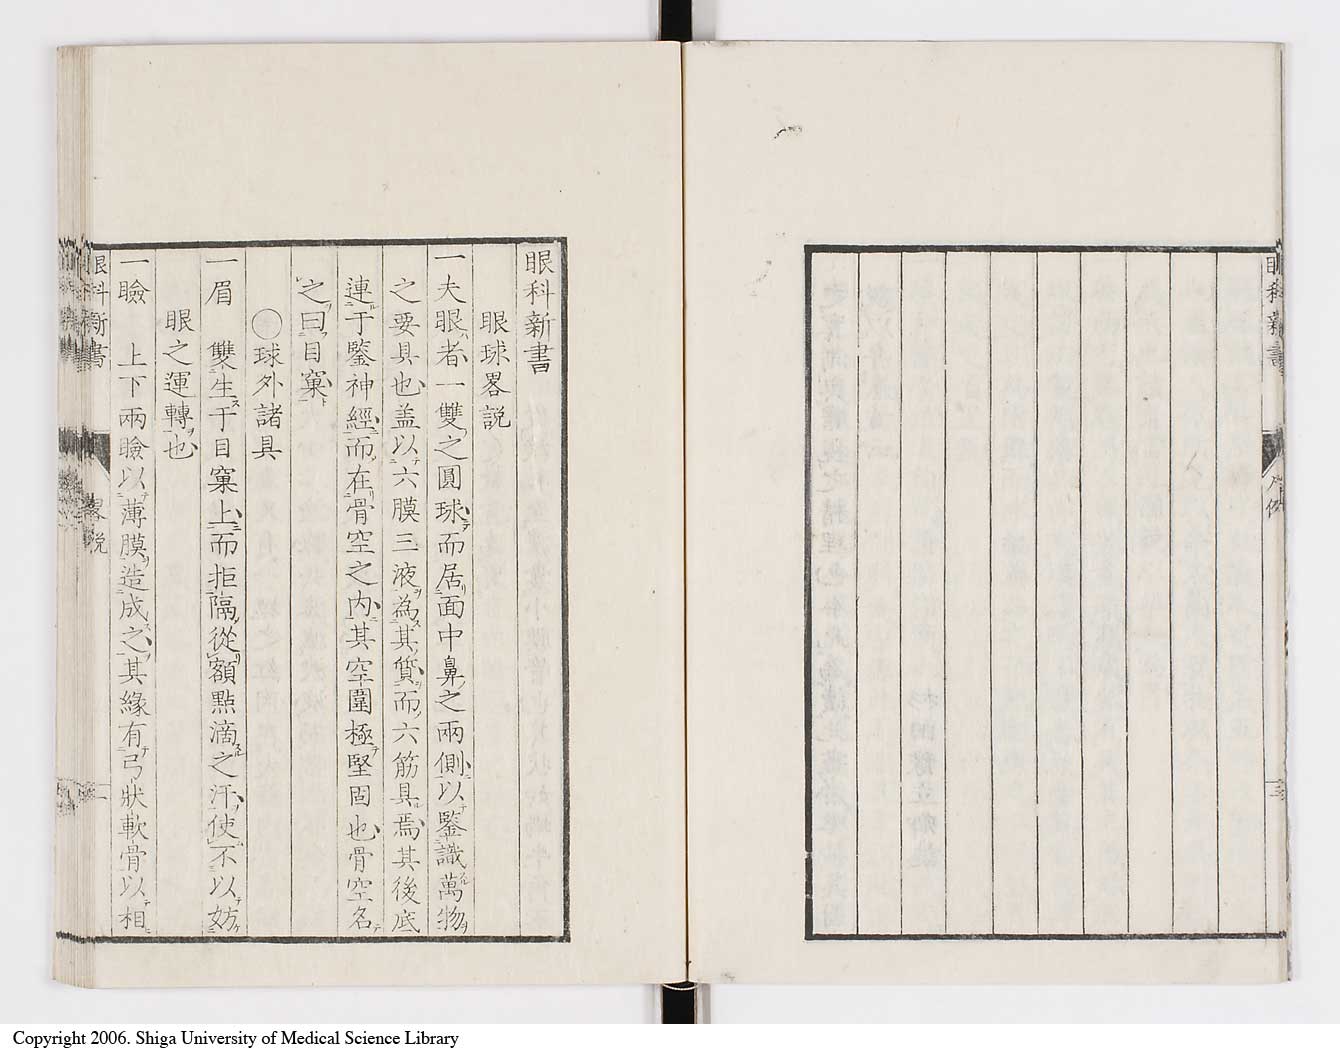 眼科新書
眼球畧説
一夫眼者一雙之圓球而居面中鼻之兩側以鑒識萬物
之要具也盖以六膜三液為其質而六筋具焉其後底
連于鑒神經而在骨空之内其空圍極堅固也骨空名
之曰目窠
〇球外諸具
一眉 雙生于目窠上而拒隔從額點滴之汗使不以妨
眼之運轉也
一瞼 上下兩瞼以薄膜造成之其緣有弓狀軟骨以相
眼科新書 畧説 一
Copyright 2006. Shiga University of Medical Science Library